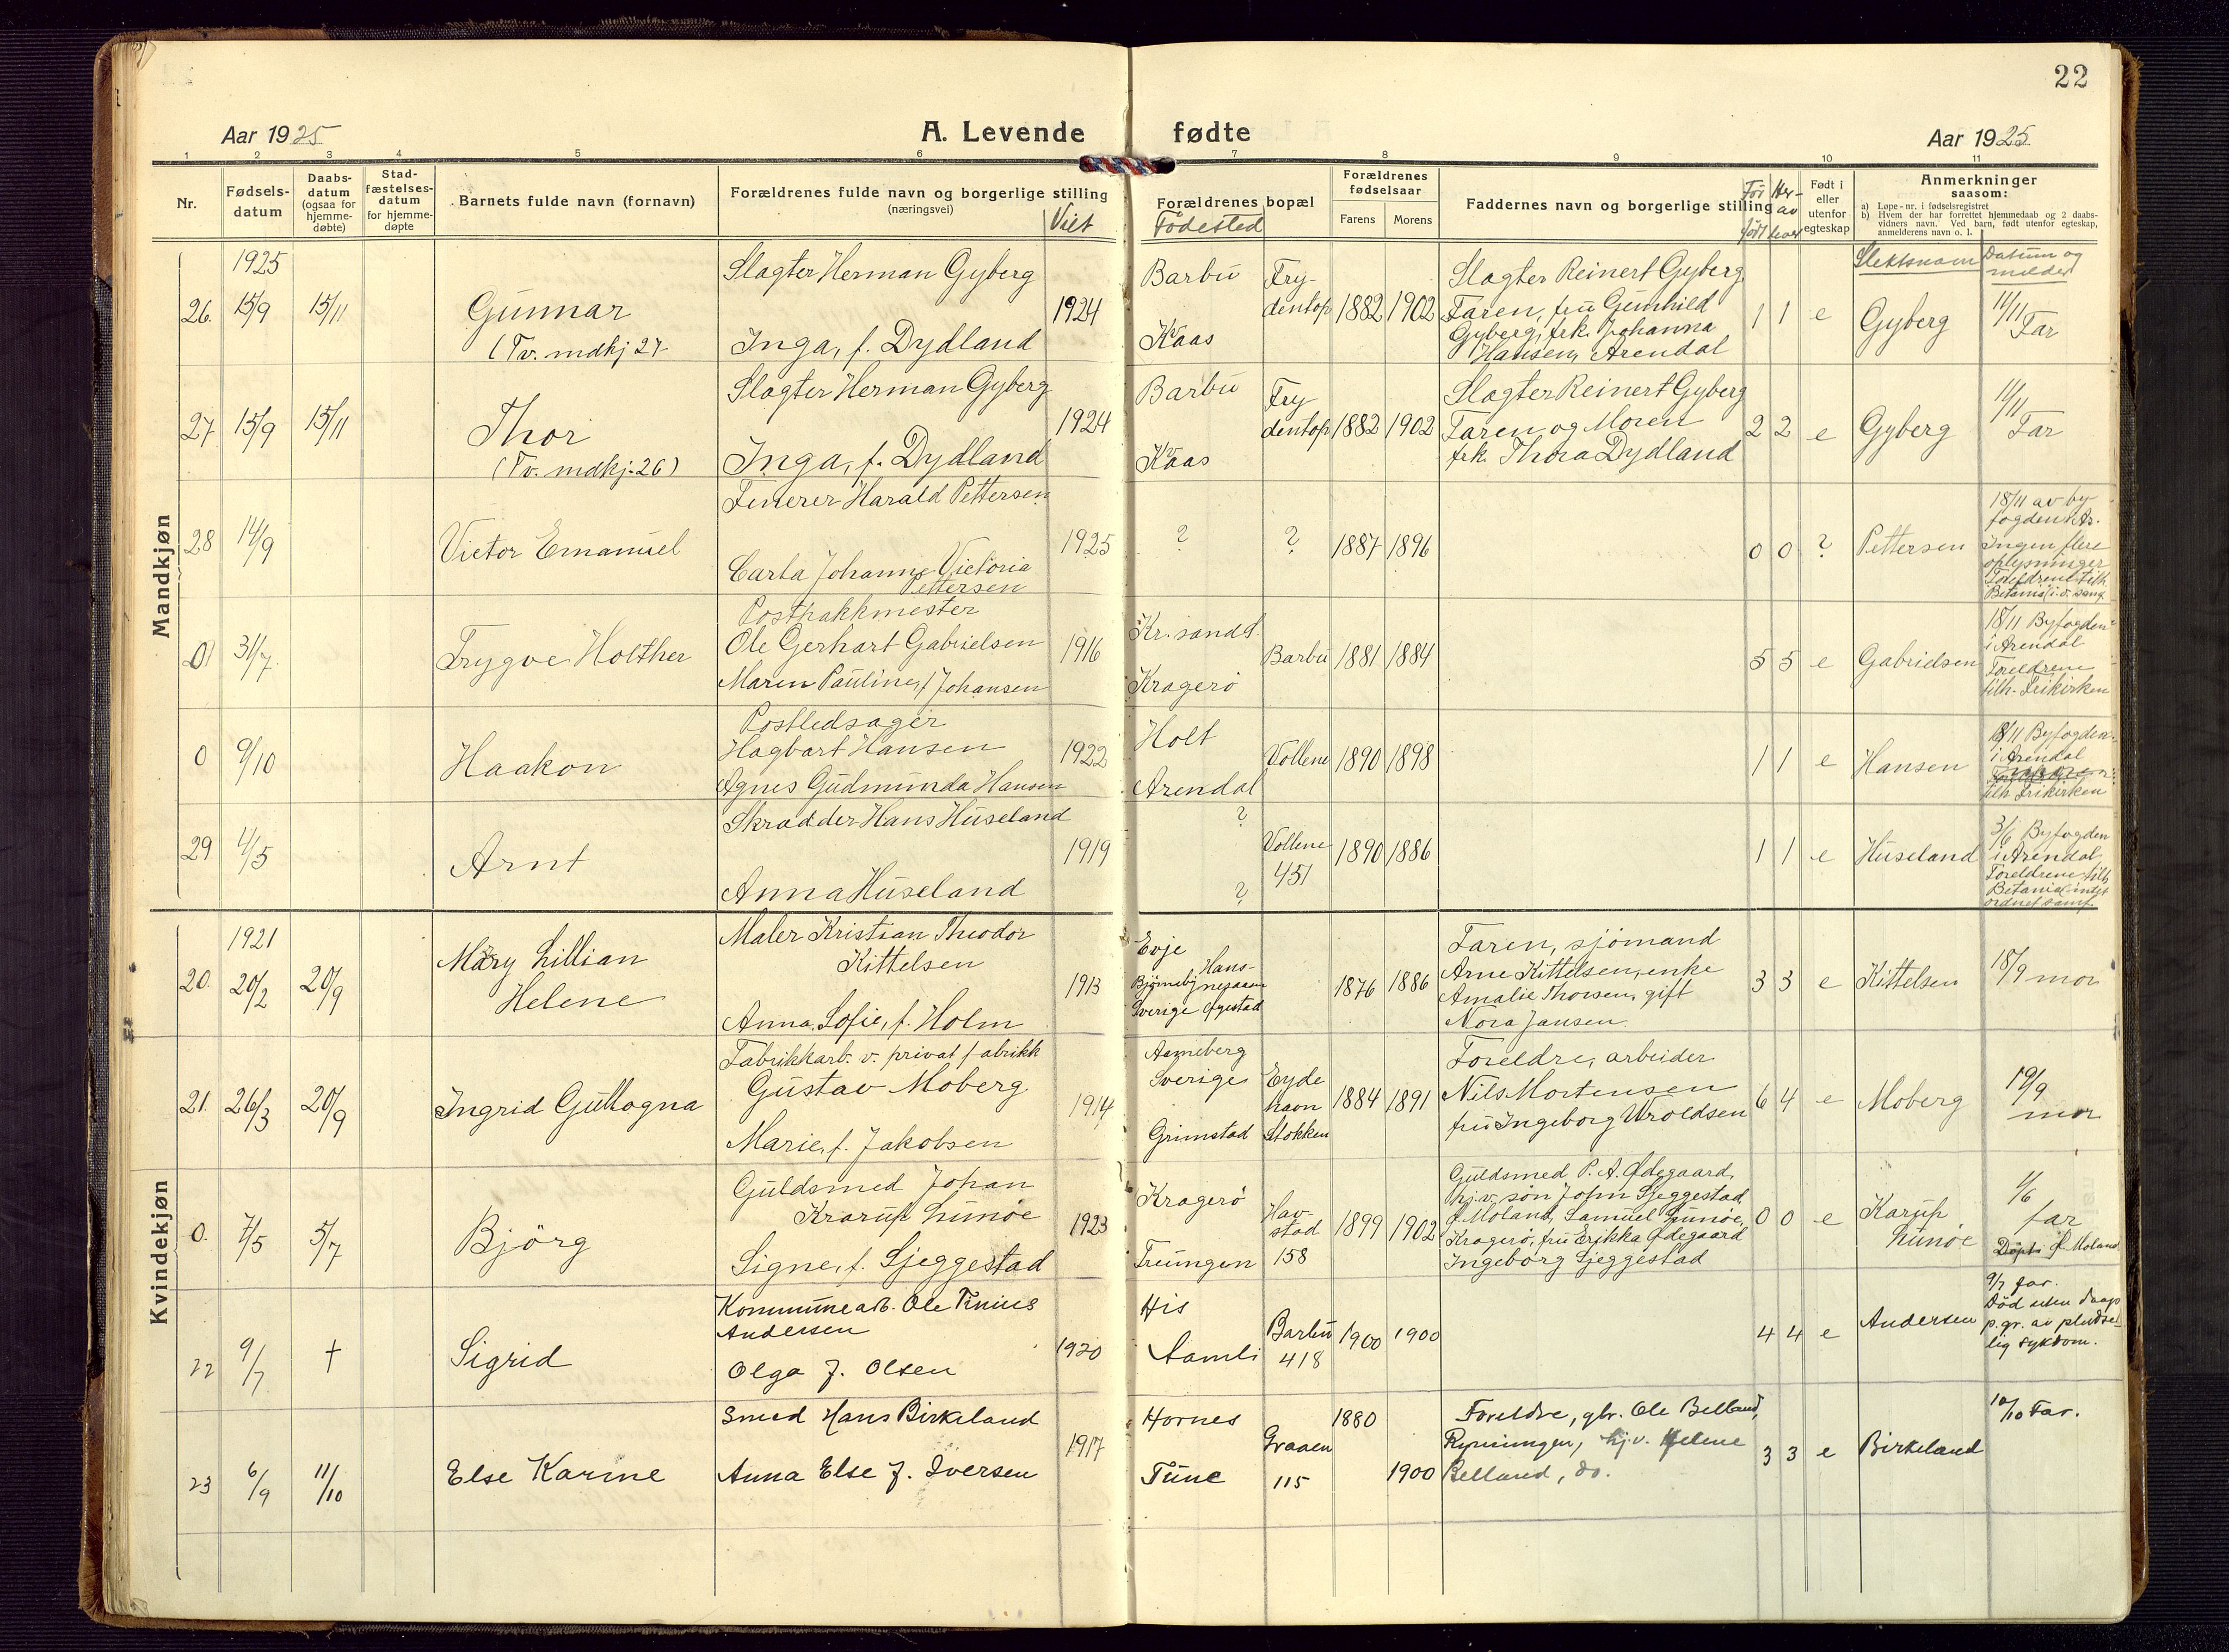 22
Aar 1925
A. Levende fødte
Aar 1925
1 2 3 4 5 6 7 8 9 10 11
Nr.
Fødsels-
datum
Daabs-
datum
(ogsaa for
hjemme-
døbte)
Stad-
fæstelses-
datum
for hjemme-
døpte
Barnets fulde navn (fornavn)
Forældrenes fulde navn og borgerlige stilling
(næringsvei)
Viet
Forældrenes bopæl
Fødested
Forældrenes
fødselsaar
Farens Morens
Faddernes navn og borgerlige stilling
Før født
Her-av lever
Født i
eller
utenfor
egteskap
Anmerkninger
saasom:
a) Løpe-nr. i fødselsregistret
b) Hvem der har forrettet hjemmedaab og 2 daabs-
vidners navn. Ved barn, født utenfor egteskap,
anmelderens navn o. l.
Slektsnavn
Datum og
melder
Mandkjøn
1925
26. 15/9 15/11
Gunnar
(Tv. mdkj 27
Slagter Herman Gyberg
Inga, f. Dydland
1924
Barbu
Kaas
Fry-
dentop
1882 1902
Slagter Reinert Gyberg,
Faren, fru Gunhild
Gyberg, frk. Johanna
Hansen, Arendal
1 1 e
Gyberg
11/11
Far
27 15/9 15/11
Thor
(Tv. mdkj. 26)
Slagter Herman Gyberg
Inga, f. Dydland
1924
Barbu
Kaas
Fry
dentop
1882 1902
Slagter Reinert Gyberg
Faren og Moren
frk. Thora Dydland
2 2 e
Gyberg
11/11
Far
28 14/9
Victor Emanuel
Finerer Harald Pettersen
Carla Johanne Victoria
Pettersen
1925
? ?
1887 1896
0 0 ?
Pettersen
18/11 av by-
fogden i Ar.
Ingen flere
oplysninger
Foreldrene tilh.
0 31/7
Trygve Holther
Postpakkmester
Ole Gerhart Gabrielsen
Maren Pauline, f Johansen
1916
Kr.sand S.
Kragerö
Barbu
1881 1884
5 5 e
Gabrielsen
18/11 Byfogden
i Arendal
Foreldrene
tilh. Frikirken
0 9/10
Haakon
Postledsager
Hagbart Hansen
Agnes Gudmunda Hansen
1922
Holt
Arendal
Vollene
1890 1898
1 1 e
Hansen
18/11 Byfogden
i Arendal
tilh. Frikirken
29 4/5
Arnt
Skrædder Hans Huseland
Anna Huseland
1919
?
?
Vollene
451
1890 1886
1 1 e
Huseland
3/6 Byfogden
i Arendal,
Foreldrene tilh.
Betania, intet
ordnet samf.
Kvindekjøn
1921
20. 20/2 20/9
Mary Lillian
Helene
Maler Kristian Theodor
Kittelsen
Anna Sofie, f. Holm
1913
Evje
Bjørneby
Sverige
Hans-
nesaasen
Øyestad
1876 1886
Faren, sjömand
Arne Kittelsen, enke
Amalie Thorsen, gift
Nora Jansen.
3 3 e
Kittelsen
18/9 mor
21. 26/3 20/9
Ingrid Gullogna
Fabrikkarb. v. privat fabrikk
Gustav Moberg
Marie, f. Jakobsen
1914
Asmeberg
Sverige
Grimstad
Eyde
havn
Stokken
1884 1891
Foreldre, arbeider
Nils Mortensen
fru Ingeborg Uroldsen
6 4 e
Moberg
19/9
mor
0. 7/5 5/7
Björg
Guldsmed Johan
Krarup Lunöe
Signe, f. Sjeggestad
1923
Kragerö
Treungen
Hav-
stad
158
1899 1902
Guldsmed P. A. Ødegaard,
hj.v. sön John Sjeggestad
Ø. Moland, Samuel Lunöe,
Kragerö, fru Erikka Ødegaard
Ingeborg Sjeggestad
0 0 e
Karup
Lunöe
1/6
far
Døpt i Ø. Moland
22 9/7 †
Sigrid
Kommunearb. Ole Tinius
Andersen
Olga f. Olsen
1920
His
Aamli
Barbu
418
1900 1900
4 4 e
Andersen
9/7 far.
Död uten daap
p.gr. av pludse-
lig sykdom.
23 6/9 11/10
Else Karine
Smed Hans Birkeland
Anna Else f. Iversen
1917
Hornes
Tune
Graaen
115
1880
1900
Foreldre, gbr. Ole Belland,
Rynningen, hj.v. Helene
Belland, do.
3 3 e
Birkeland
10/10 Far.